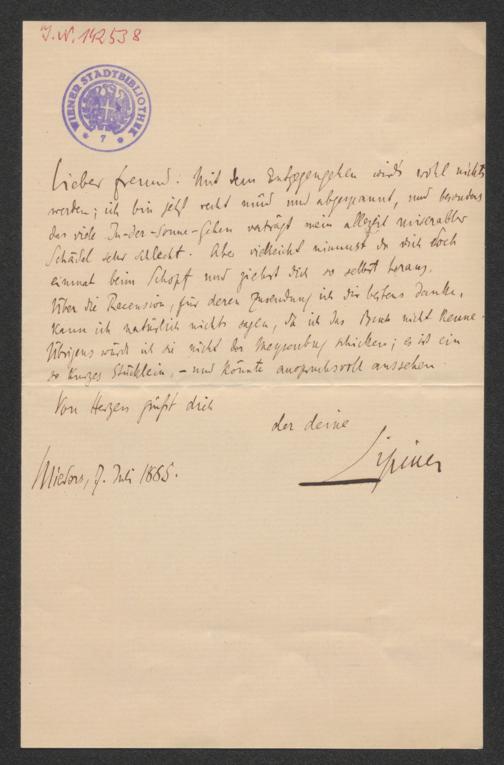 I.N. 142538
WIENER STADTBIBLIOTHEK
7
Lieber Freund! Mit dem Entgegengehen wird's wohl nichts
werden; ich bin jetzt recht müd und abgespannt, und besonders
das viele In-der-Sonne-Gehen verträgt mein allezeit miserabler
Schädel sehr schlecht. Aber vielleicht nimmst du dich doch
einmal beim Schopf und ziehst dich so selbst heraus.
Über die Recension, für deren Zusendung ich dir bestens danke,
kann ich natürlich nichts sagen, da ich das Buch nicht kenne.
Übrigens würde ich sie nicht der Meysenbug schicken; es ist ein
so kurzes Stücklein, – und könnte anspruchsvoll aussehen.
Von Herzen grüßt dich
der deine
Lipiner
Mieders, 7. Juli 1885.